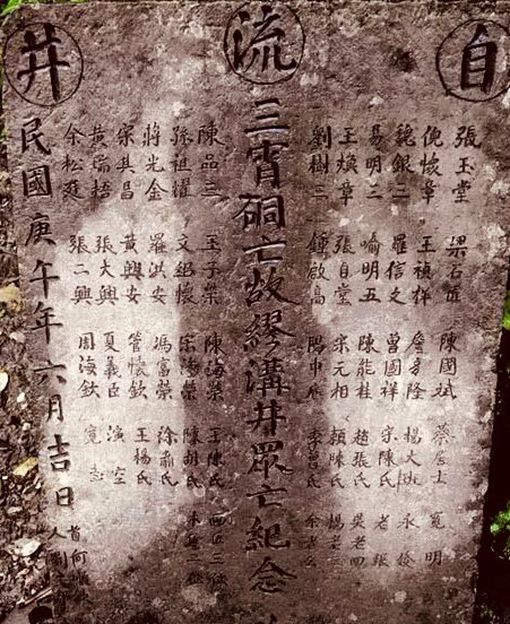 自流井
張玉堂 梁石匠 陳國斌 蔡居士 寬明
倪懷章 王禎祥 詹身隆 楊大
魏銀二 羅信文 曾國祥 宗陳氏 老張
易明二 喻明五 陳能桂 趙張氏 吳老四
王煥章 張自堂 宗元相 賴陳氏 楊老
劉樹三 鍾啟高 李曾氏
三霄硐亡故繆溝井眾亡紀念
陳品三 王子榮 陳海榮 王陳氏
孫祖濯 文紹懷 陳胡氏
蔣光金 羅洪安 馮富榮 徐蕭氏
宋其昌 黃興安 管懷欽 王楊氏
黃瑞梧 張大興 夏義臣 演空
余松廷 張二興 周海欽 寬
民國庚午年六月吉日